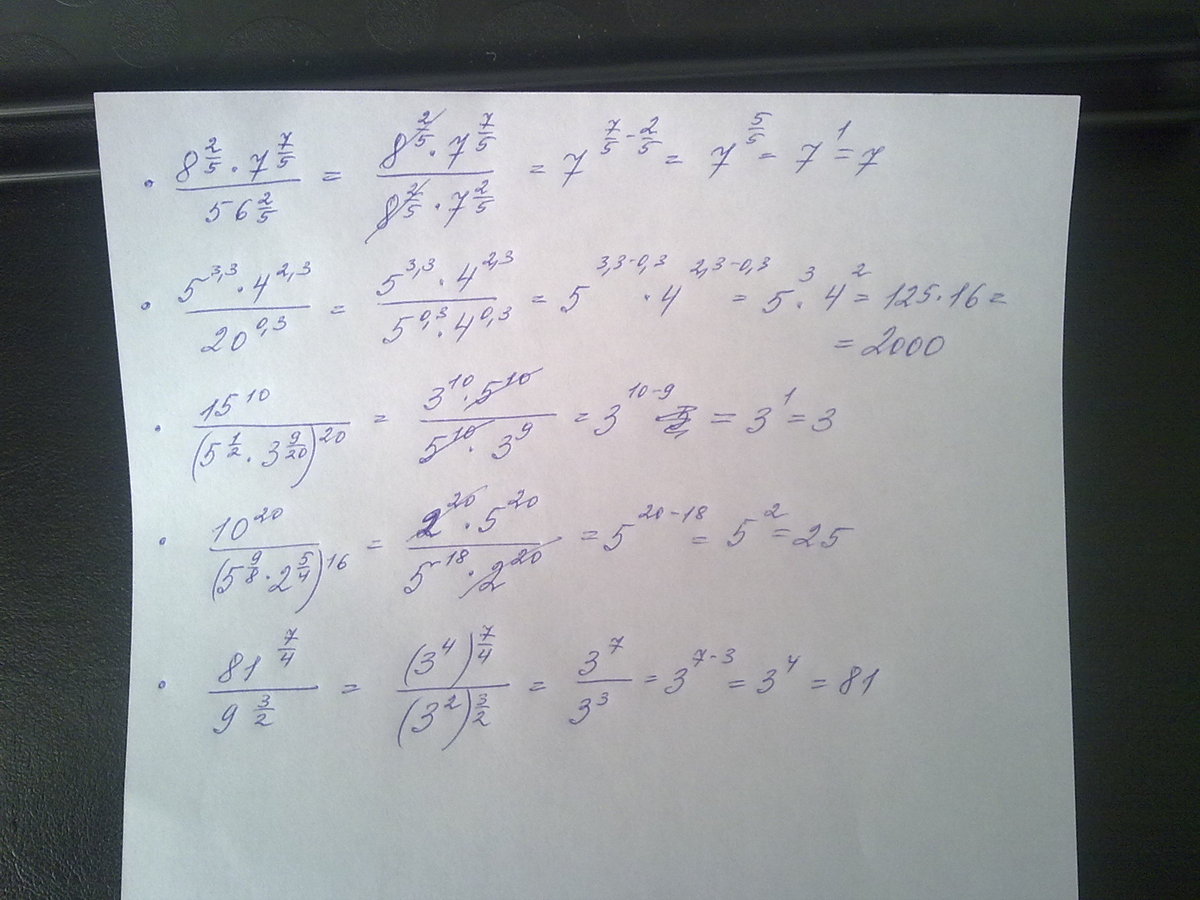 • 8^(2/5) · 7^(7/5) / 56^(2/5) = 8^(2/5) · 7^(7/5) / 8^(2/5) · 7^(2/5) = 7^(7/5 - 2/5) = 7^(5/5) = 7^1 = 7
• 5^3,3 · 4^2,3 / 20^0,3 = 5^3,3 · 4^2,3 / 5^0,3 · 4^0,3 = 5^(3,3-0,3) · 4^(2,3-0,3) = 5^3 · 4^2 = 125 · 16 =
= 2000
• 15^10 / (5^(1/2) · 3^(9/20))^20 = 3^10 · 5^10 / 5^10 · 3^9 = 3^(10-9) = 3^1 = 3
• 10^20 / (5^(9/8) · 2^(5/4))^16 = 2^20 · 5^20 / 5^18 · 2^20 = 5^(20-18) = 5^2 = 25
• 81^(7/4) / 9^(3/2) = (3^4)^(7/4) / (3^2)^(3/2) = 3^7 / 3^3 = 3^(7-3) = 3^4 = 81